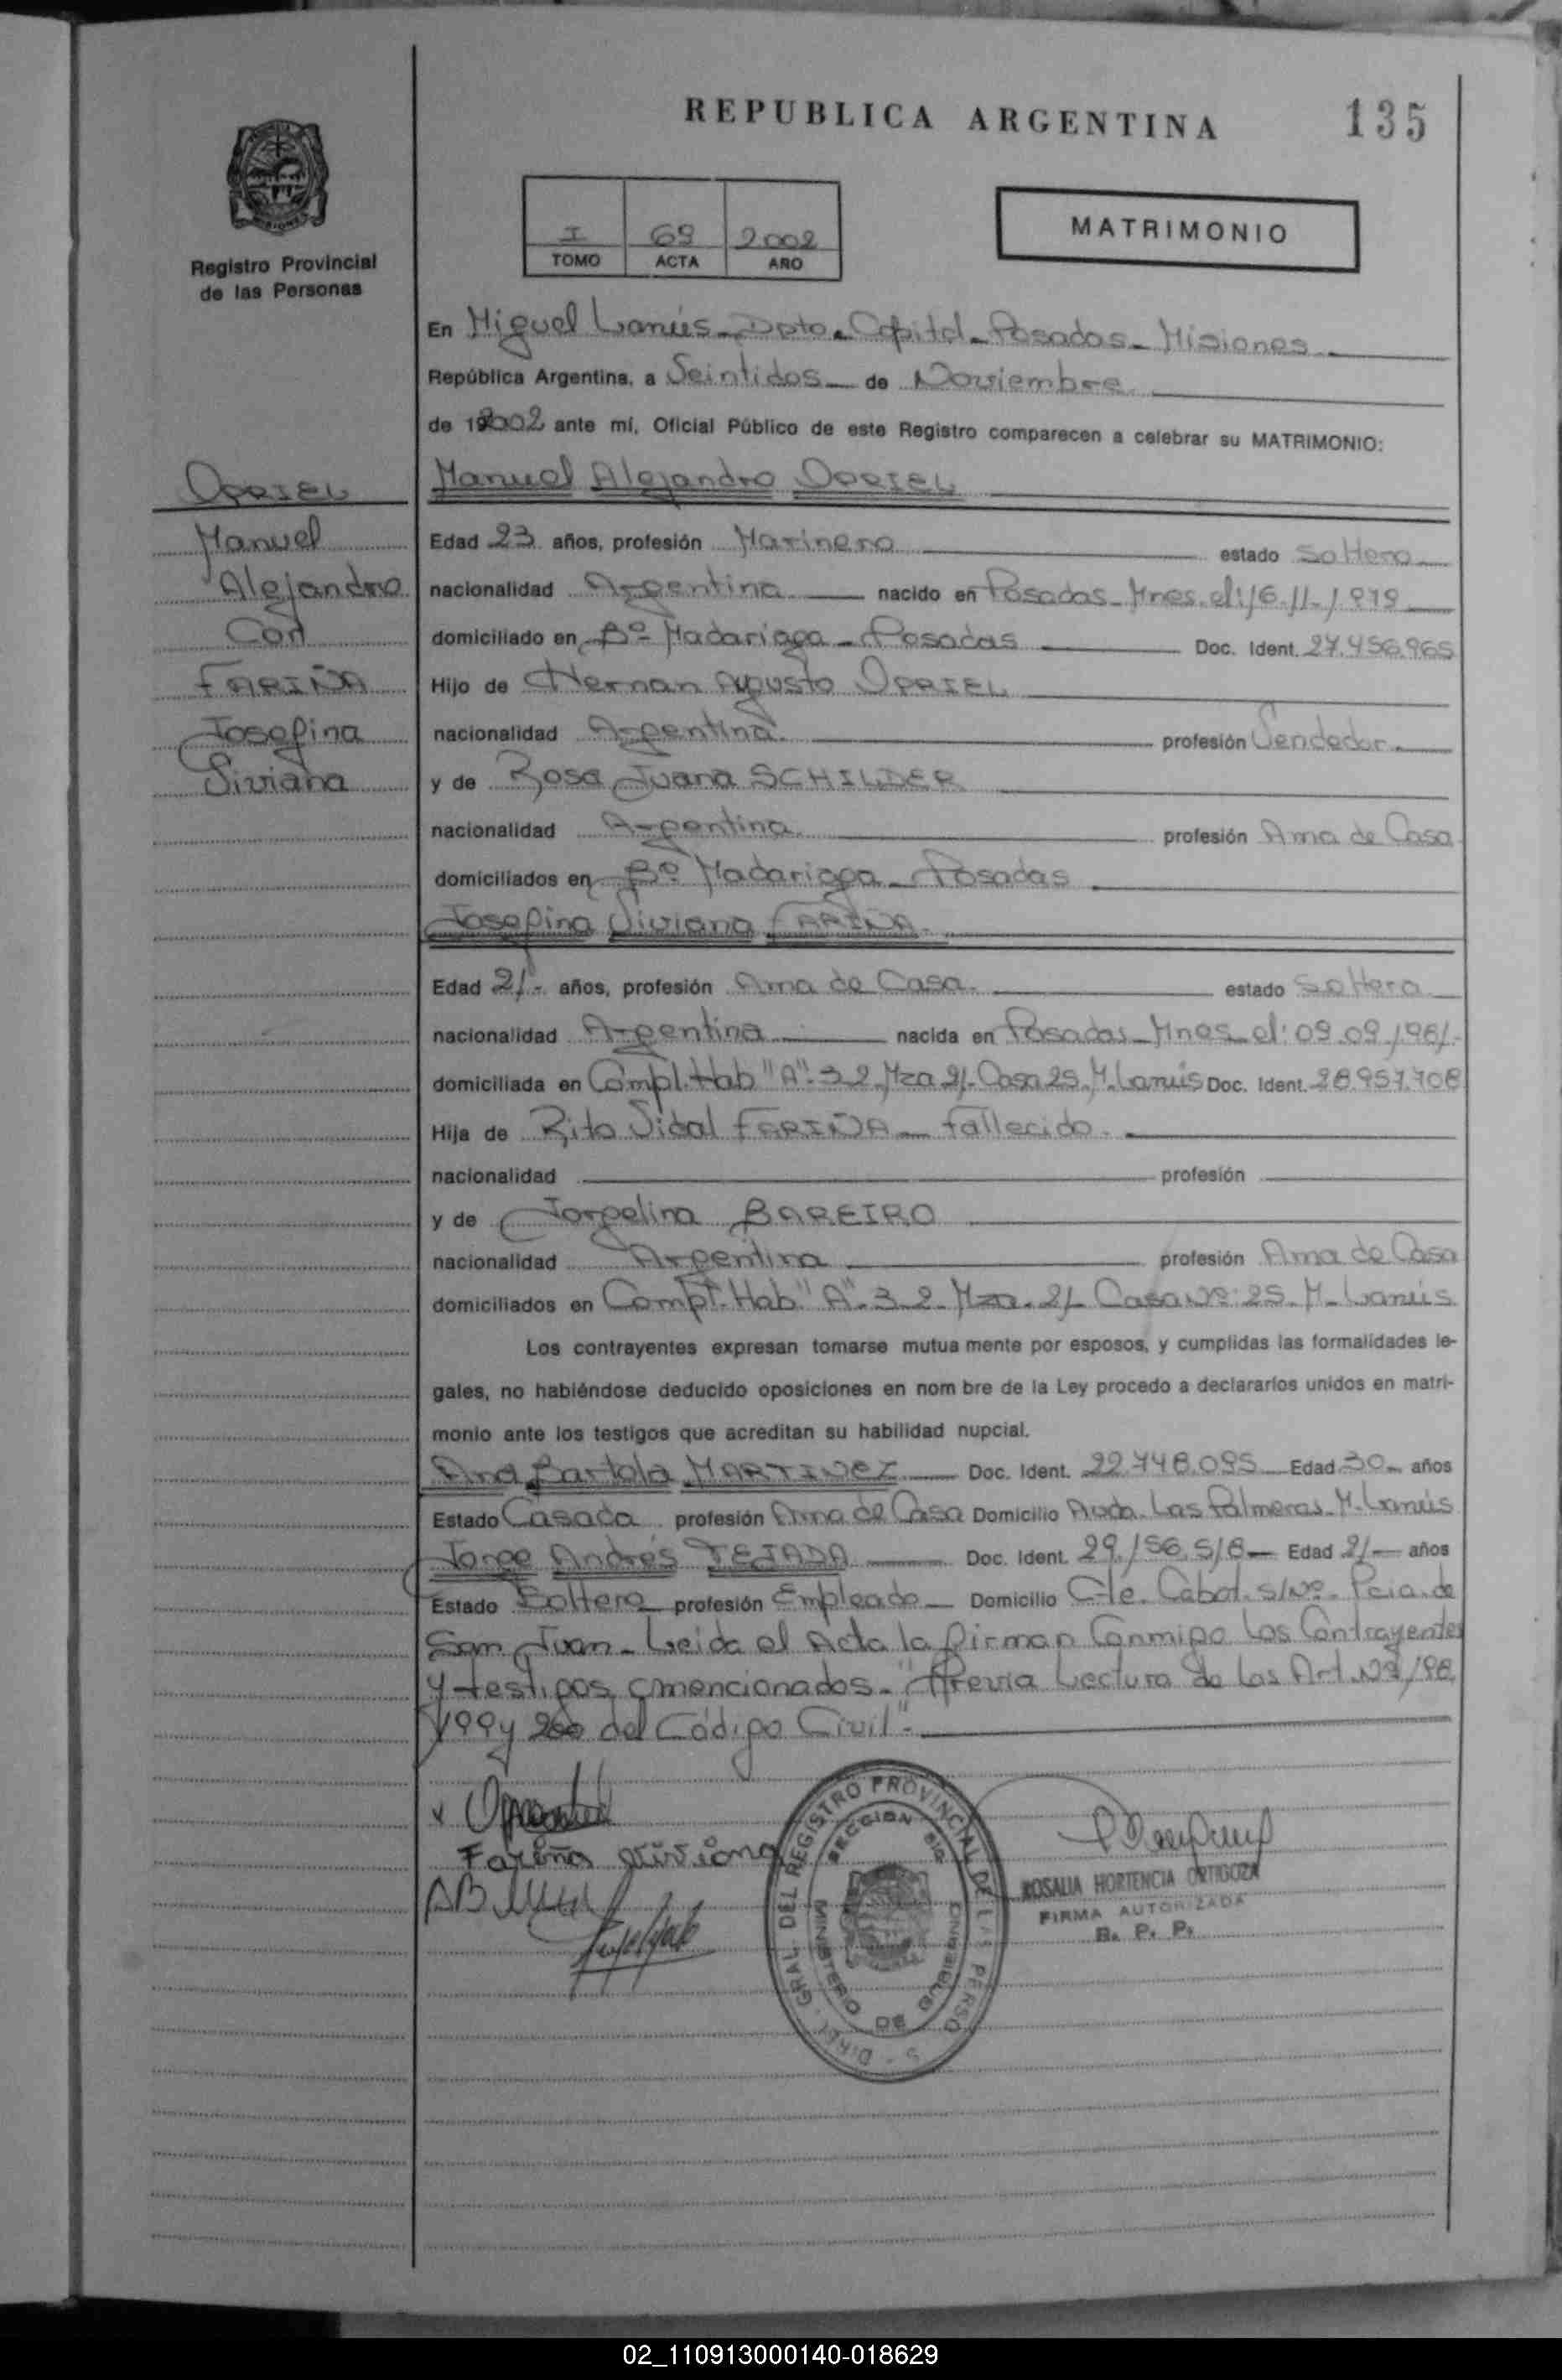 REPUBLICA ARGENTINA
135
I 69 2002
TOMO ACTA AÑO
MATRIMONIO
Registro Provincial
de las Personas
En Miguel Lanús - Dpto. Capital - Posadas - Misiones
República Argentina, a Veintidos de Noviembre
de 2002 ante mí, Oficial Público de este Registro comparecen a celebrar su MATRIMONIO:
Manuel Alejandro OPPIEL
OPPIEL
Manuel
Alejandro
Con
FARIÑA
Josefina
Viviana
Edad 23 años, profesión Marinero estado Soltero
nacionalidad Argentina nacido en Posadas - Mnes. el: 16-11-1979
domiciliado en Bº Madariaga - Posadas Doc. Ident. 27.456.965
Hijo de Hernan Agusto OPPIEL
nacionalidad Argentina profesión Vendedor
y de Rosa Juana SCHILDER
nacionalidad Argentina profesión Ama de Casa
domiciliados en Bº Madariaga - Posadas
Josefina Viviana FARIÑA
Edad 21.- años, profesión Ama de Casa. estado Soltera
nacionalidad Argentina nacida en Posadas - Mnes. el: 09.09.1981.-
domiciliada en Compl. Hab "A" - 32 - Mza 21 - Casa 25. M. Lanús Doc. Ident. 28.957.708
Hija de Rito Vidal FARIÑA - Fallecido.
nacionalidad profesión
y de Jorgelina BAREIRO
nacionalidad Argentina profesión Ama de Casa
domiciliados en Compl. Hab "A" - 32 - Mza. 21 Casa Nº 25. M. Lanús
Los contrayentes expresan tomarse mutua mente por esposos, y cumplidas las formalidades le-
gales, no habiéndose deducido oposiciones en nom bre de la Ley procedo a declararlos unidos en matri-
monio ante los testigos que acreditan su habilidad nupcial.
Ana Bartola MARTINEZ Doc. Ident. 22.748.095 Edad 30 años
Estado Casada profesión Ama de Casa Domicilio Avda. Las Palmeras. M. Lanús
Jorge Andrés TEJADA Doc. Ident. 29.156.518 Edad 21 años
Estado Soltero profesión Empleado Domicilio Cte. Cabot. s/Nº - Pcia. de
San Juan - Leida el Acta la firman Conmigo Los Contrayentes
y testigos mencionados. "Previa Lectura de Los Art. Nº 198,
199 y 200 del Código Civil".-
Fariña viviana
DIREC. GRAL. DEL REGISTRO PROVINCIAL DE LAS PERSO S
MINISTERIO DE GOBIERNO
ROSALIA HORTENCIA ORTIGOZA
FIRMA AUTORIZADA
R. P. P.
02_110913000140-018629